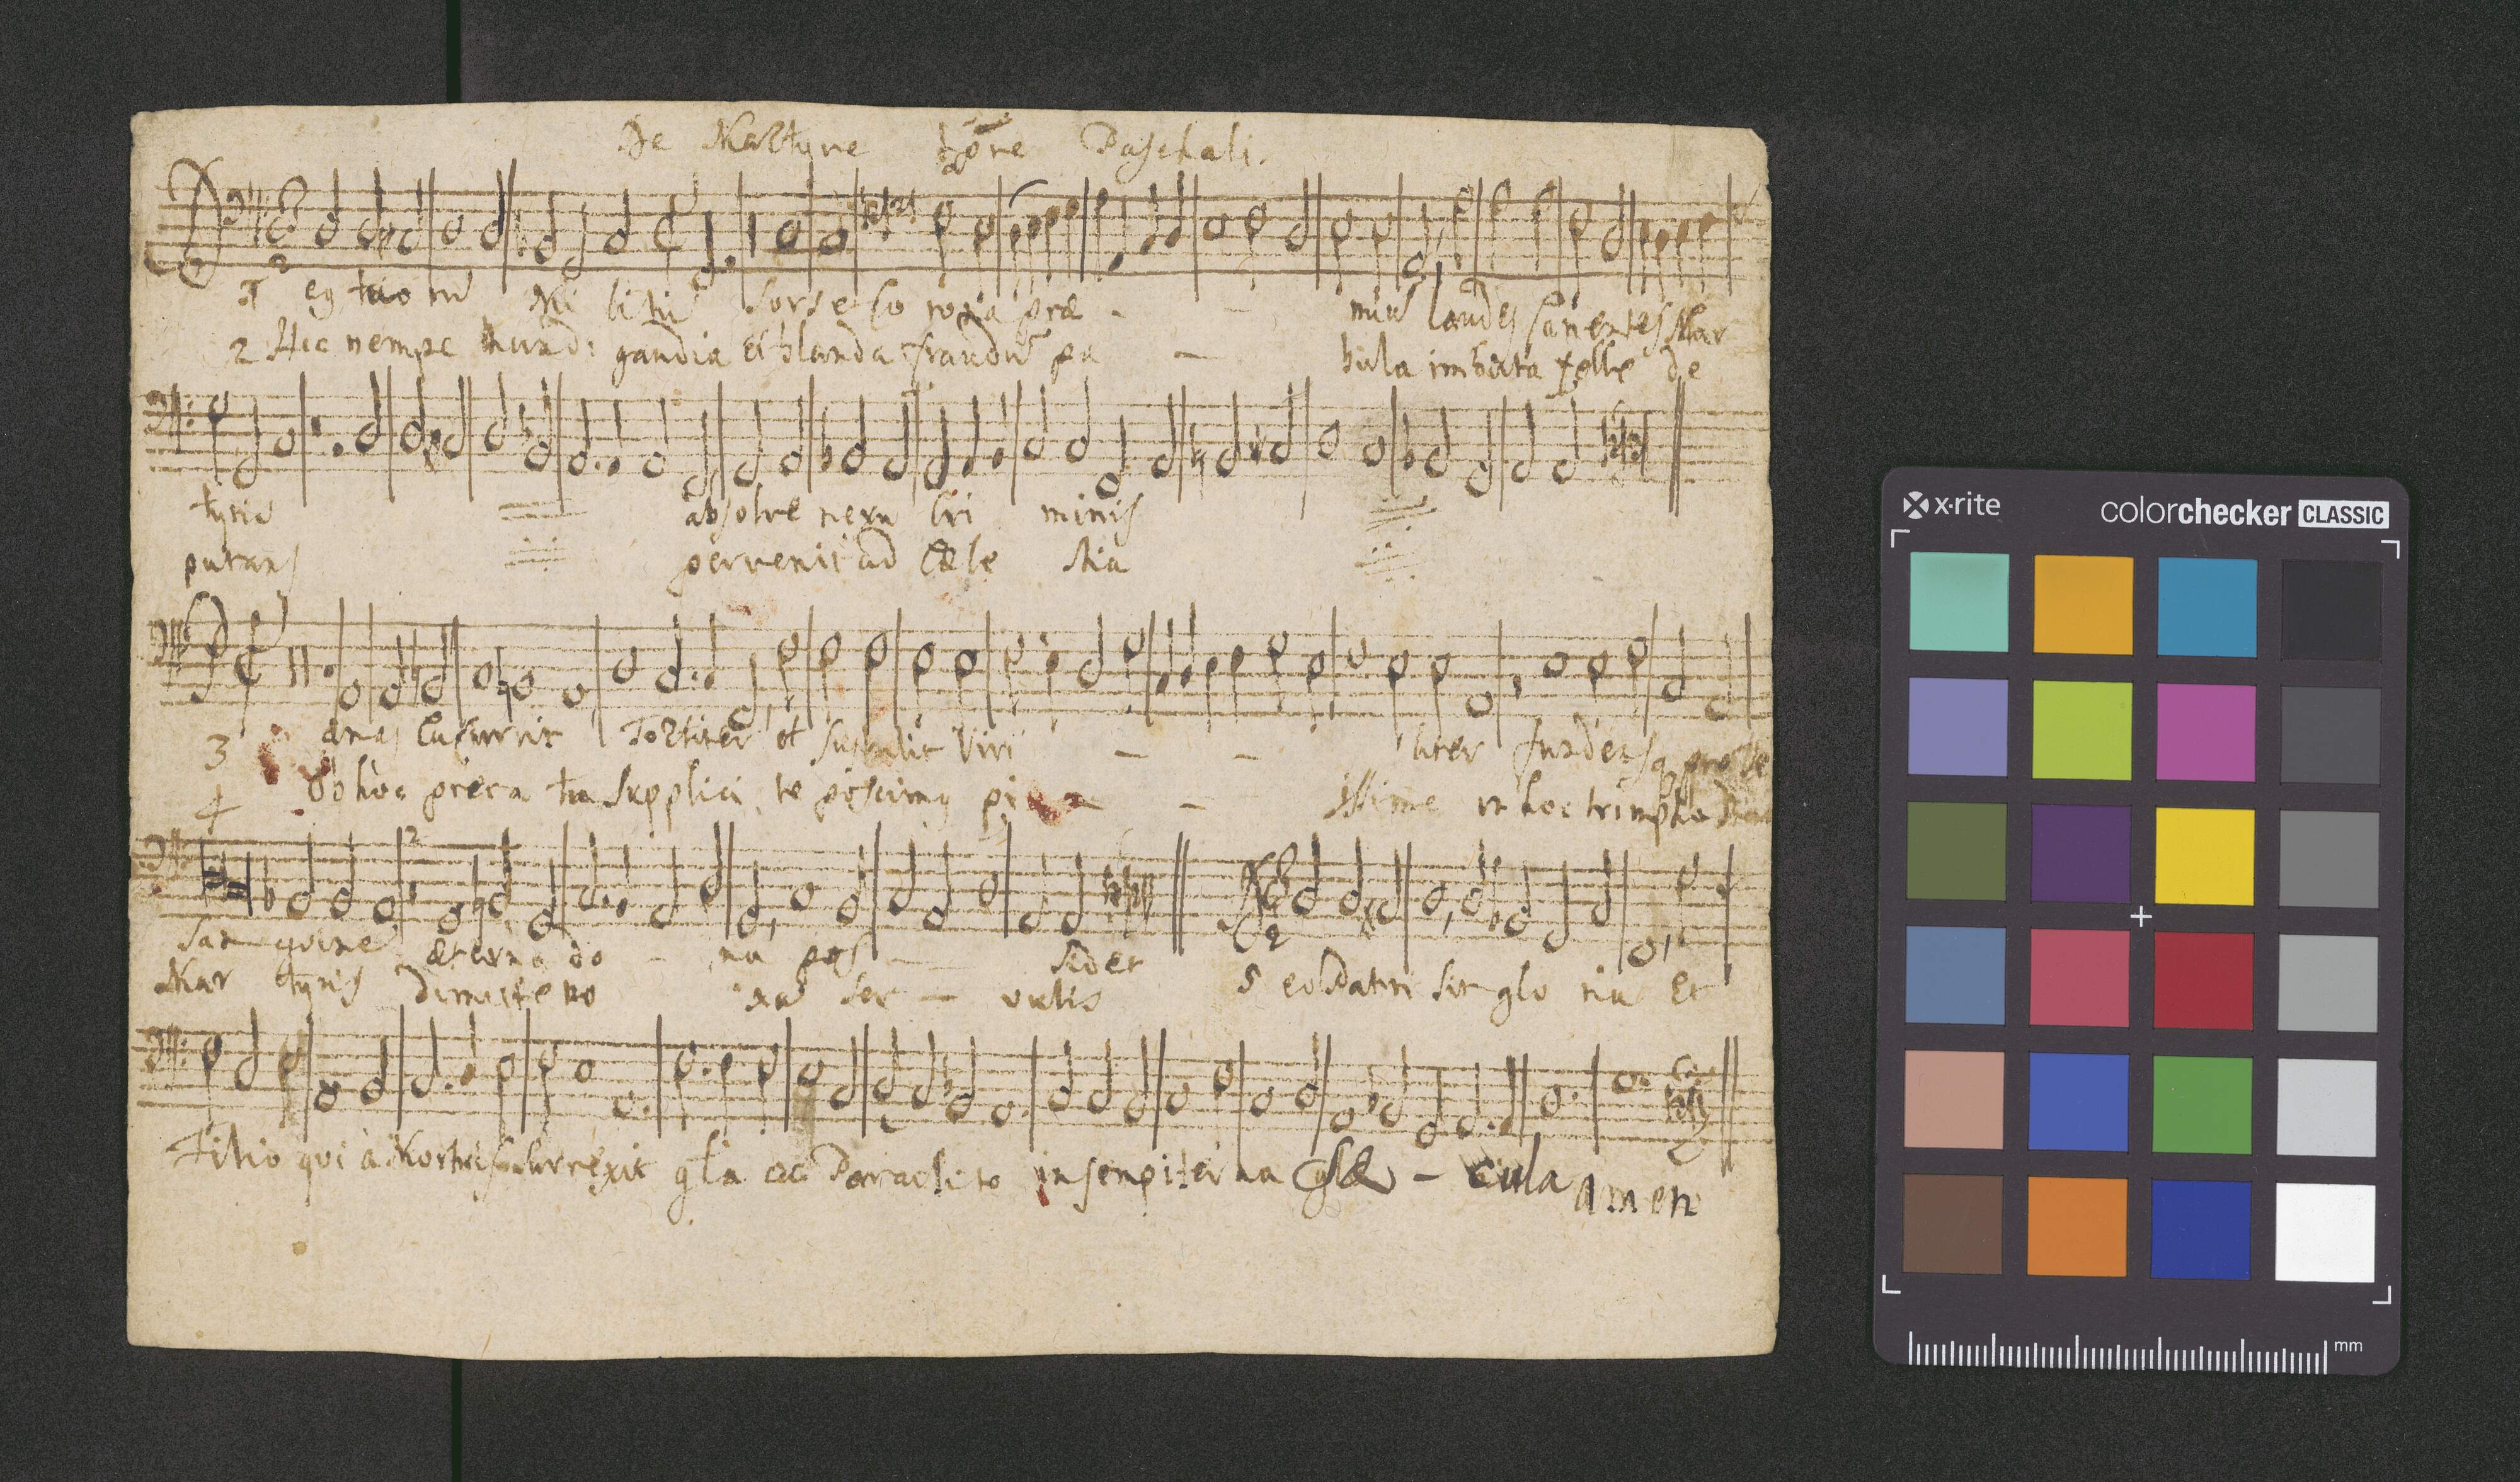 De Martyre tp̄ōre Paschali.
1 eg tuo rū Mi litū sors et Co rona præ - - miū laudes Canentes Mar
2 Hic nempe mundi gaudia et blanda fraudū pa - bula imbuta felle de
tyris absolve nexu Cri minis
putans pervenit ad Cæle stia
3 ænas Cucurrit Fortiter et Sustulit Viri - - liter fundensq pro te
4 Ob hoc preca tu Supplici te poscimus pi - - issime in hoc triumpho
San guine æterna do - na pos - sidet
Mar tyris dimitte no xa Ser - vulis 5 eo Patri Sit glo ria Et
Filio qui à Mortuis Surrexit gl̄a ac Paraclito in sempiterna sæ - cula amen
x·rite colorchecker CLASSIC
mm